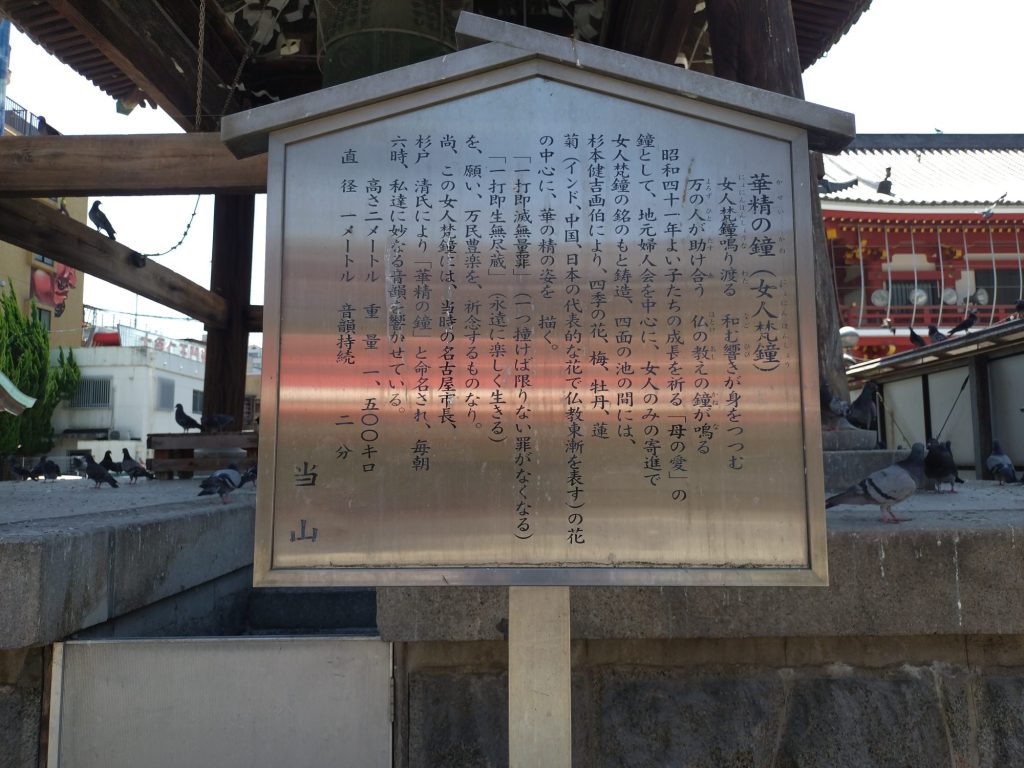 華精の鐘（女人梵鐘）
女人梵鐘鳴り渡る　和む響きが身をつつむ
万の人が助け合う　仏の教えの鐘が鳴る
昭和四十一年よい子たちの成長を祈る「母の愛」の
鐘として、地元婦人会を中心に、女人のみの寄進で
女人梵鐘の銘のもと鋳造、四面の池の間には、
杉本健吉画伯により、四季の花、梅、牡丹、蓮
菊（インド、中国、日本の代表的な花で仏教東漸を表す）の花
の中心に、華の精の姿を　描く。
「一打即滅無量罪」（一つ撞けば限りない罪がなくなる）
「一打即生無尽蔵」（永遠に楽しく生きる）
を、願い、万民豊楽を、祈念するものなり。
尚、この女人梵鐘には、当時の名古屋市長、
杉戸　清氏により「華精の鐘」と命名され、毎朝
六時、私達に妙なる音韻を響かせている。
高さ二メートル　重　量　一、五〇〇キロ
直　径　一メートル　音韻持続　二　分
当　山